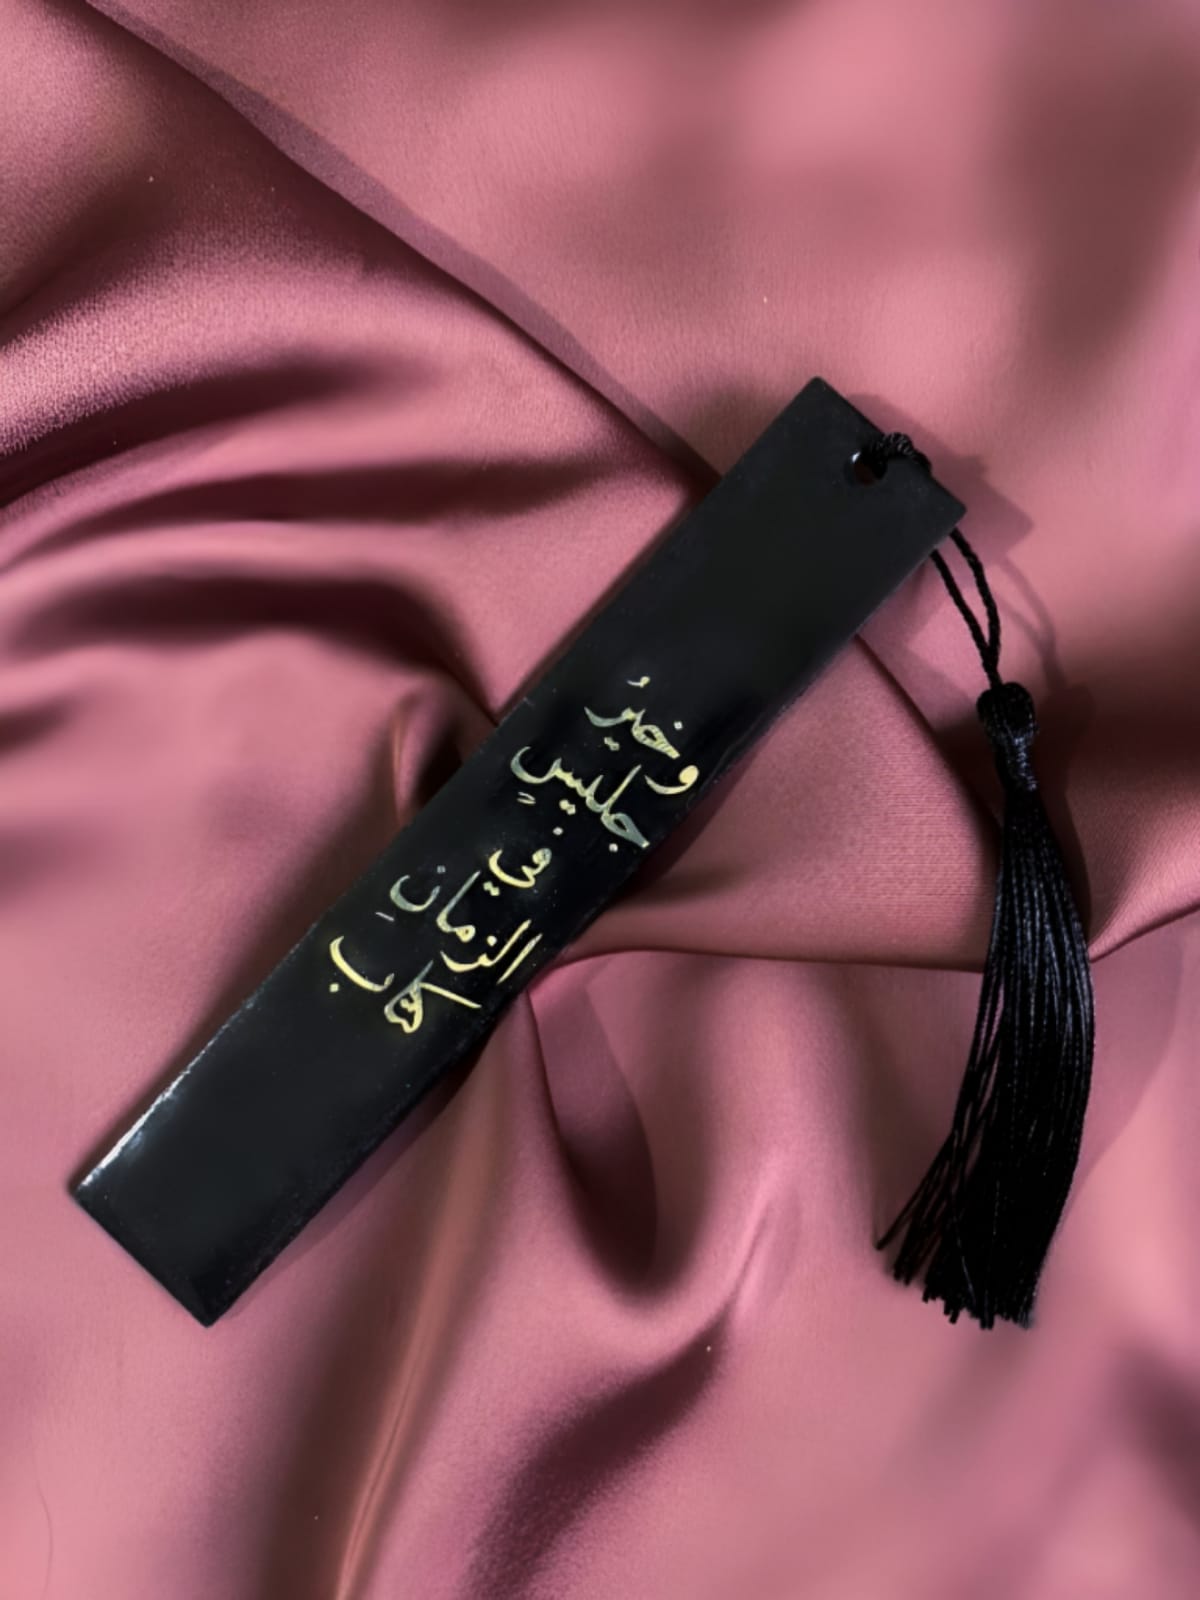 وخيرُ
جليسٍ
في
الزمانِ
كتاب